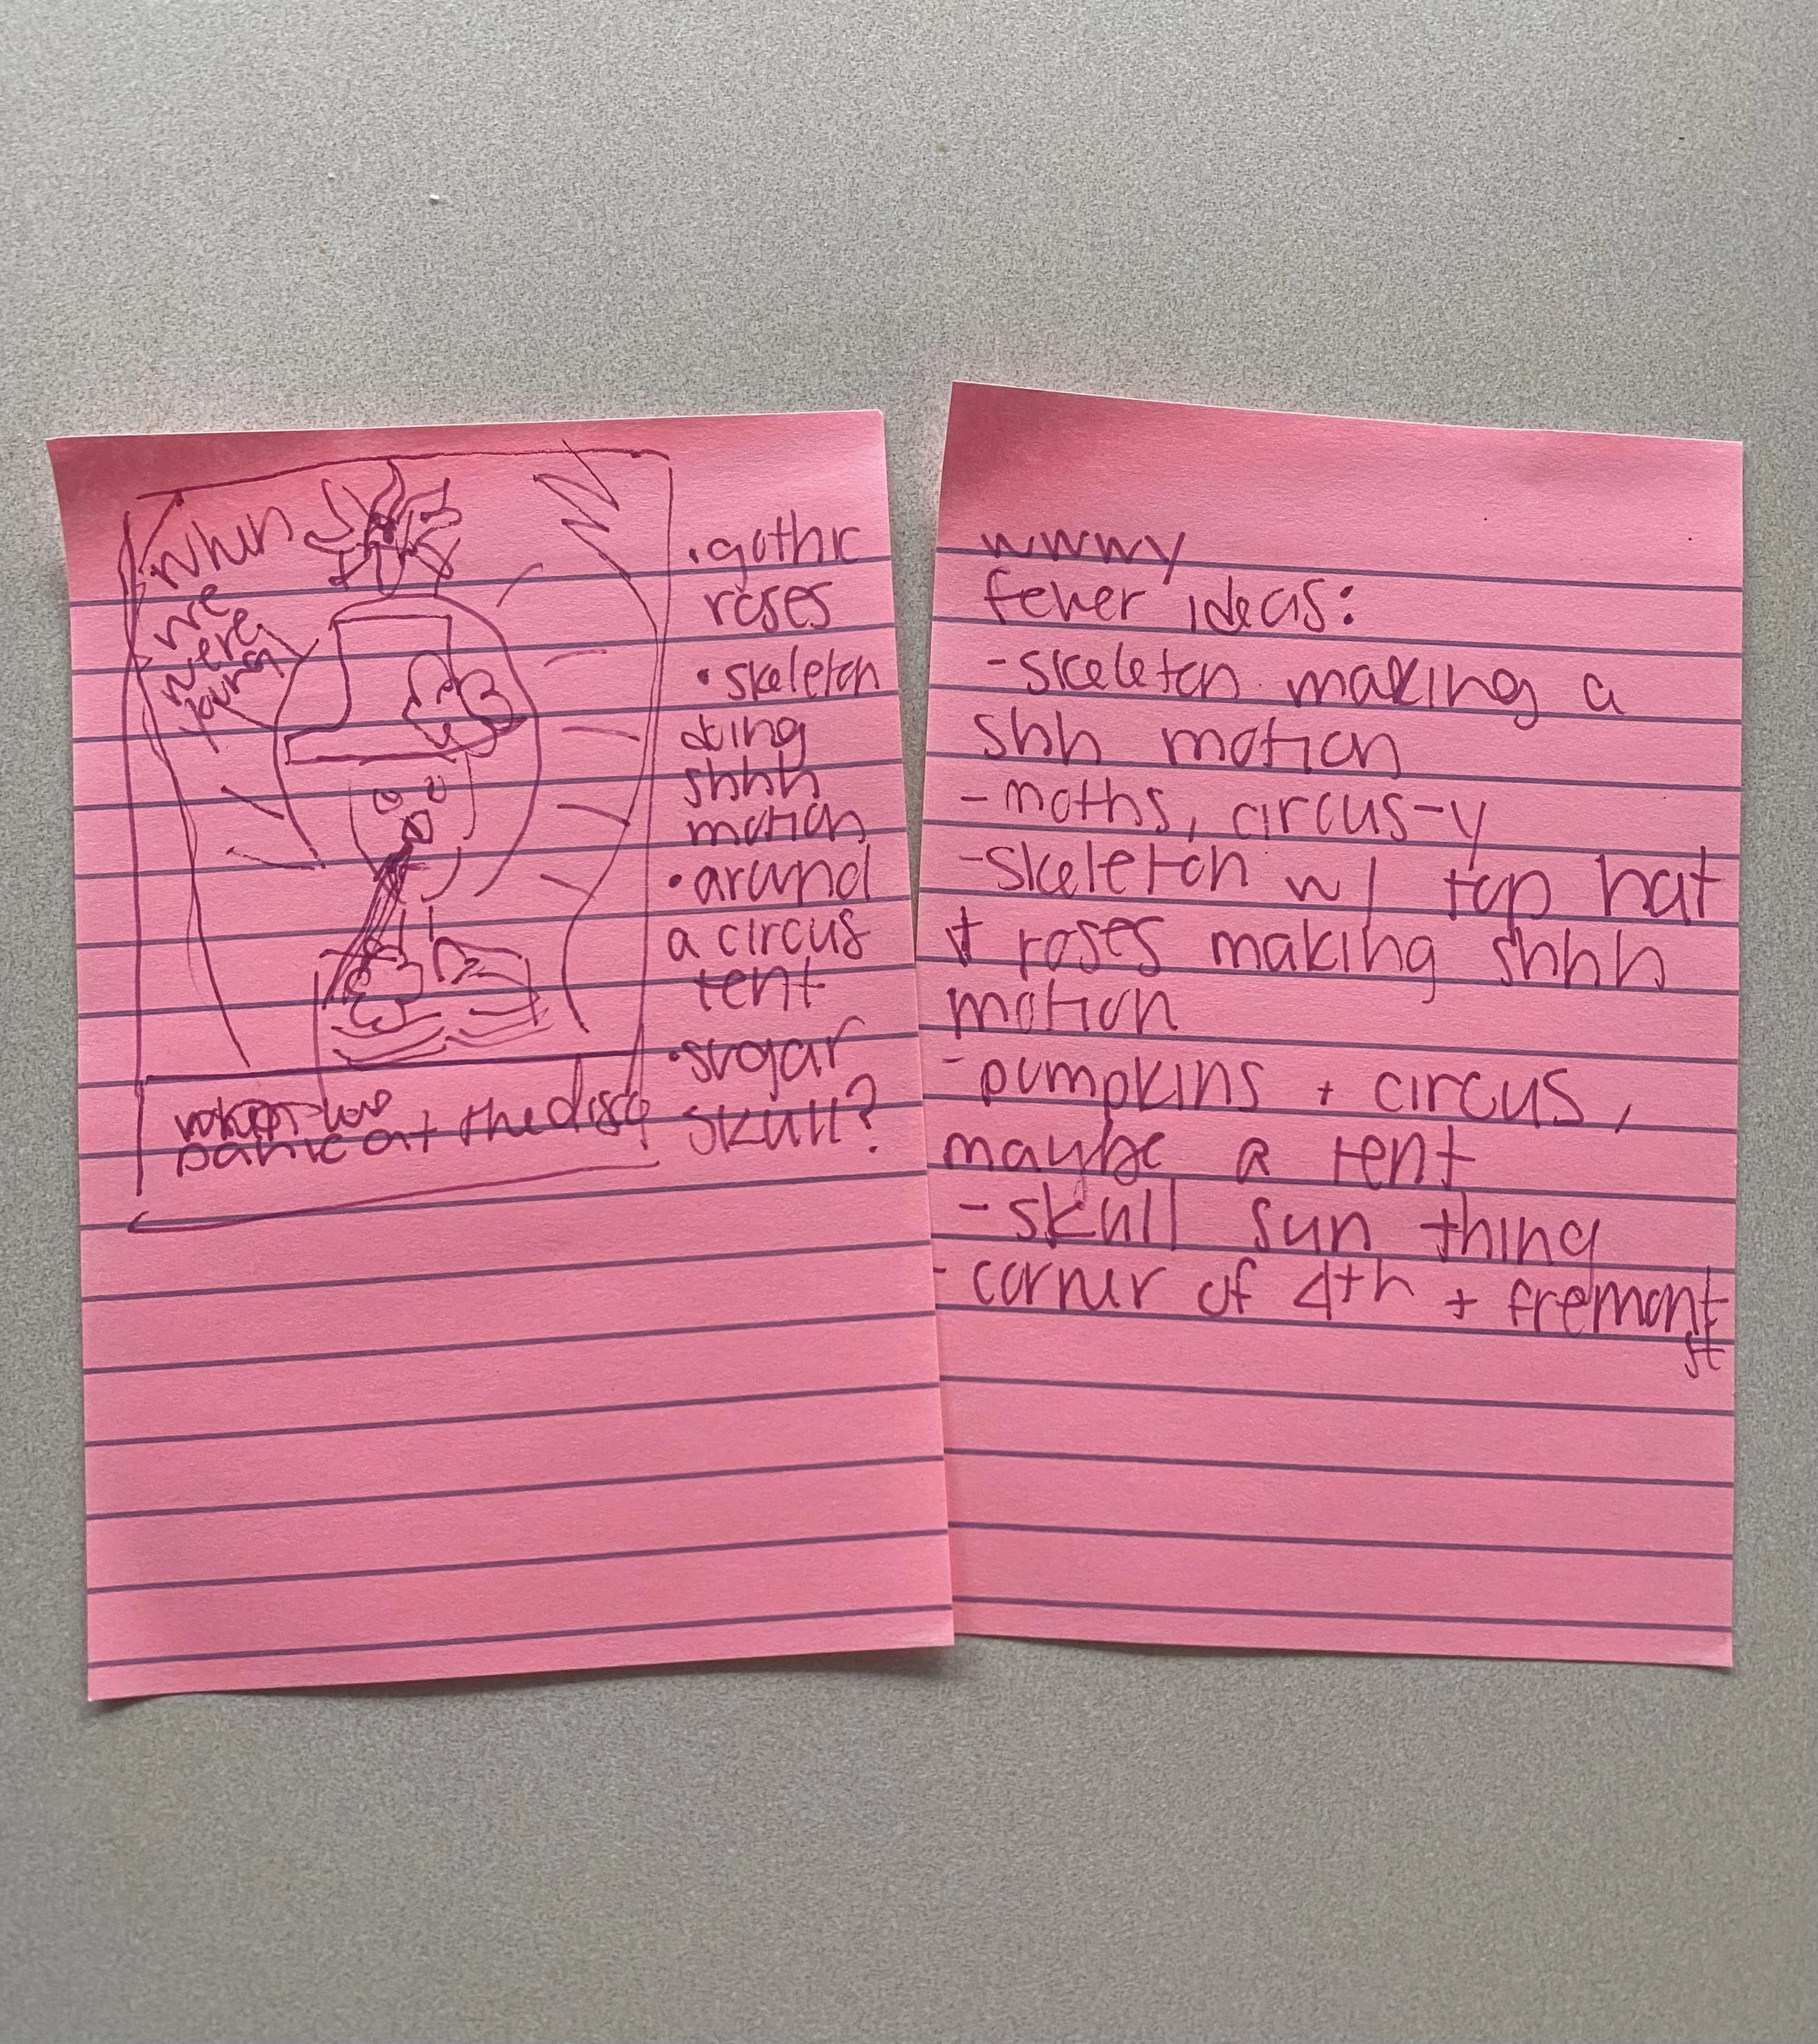 when
we
were
young
panic at the disco
• gothic
roses
• skeleton
doing
shhh
motion
• around
a circus
tent
• sugar
skull?
wwwy
fever ideas:
- skeleton making a
shh motion
- moths, circus-y
- skeleton w/ top hat
+ roses making shhh
motion
- pumpkins + circus,
maybe a tent
- skull sun thing
- corner of 4th + fremont
st